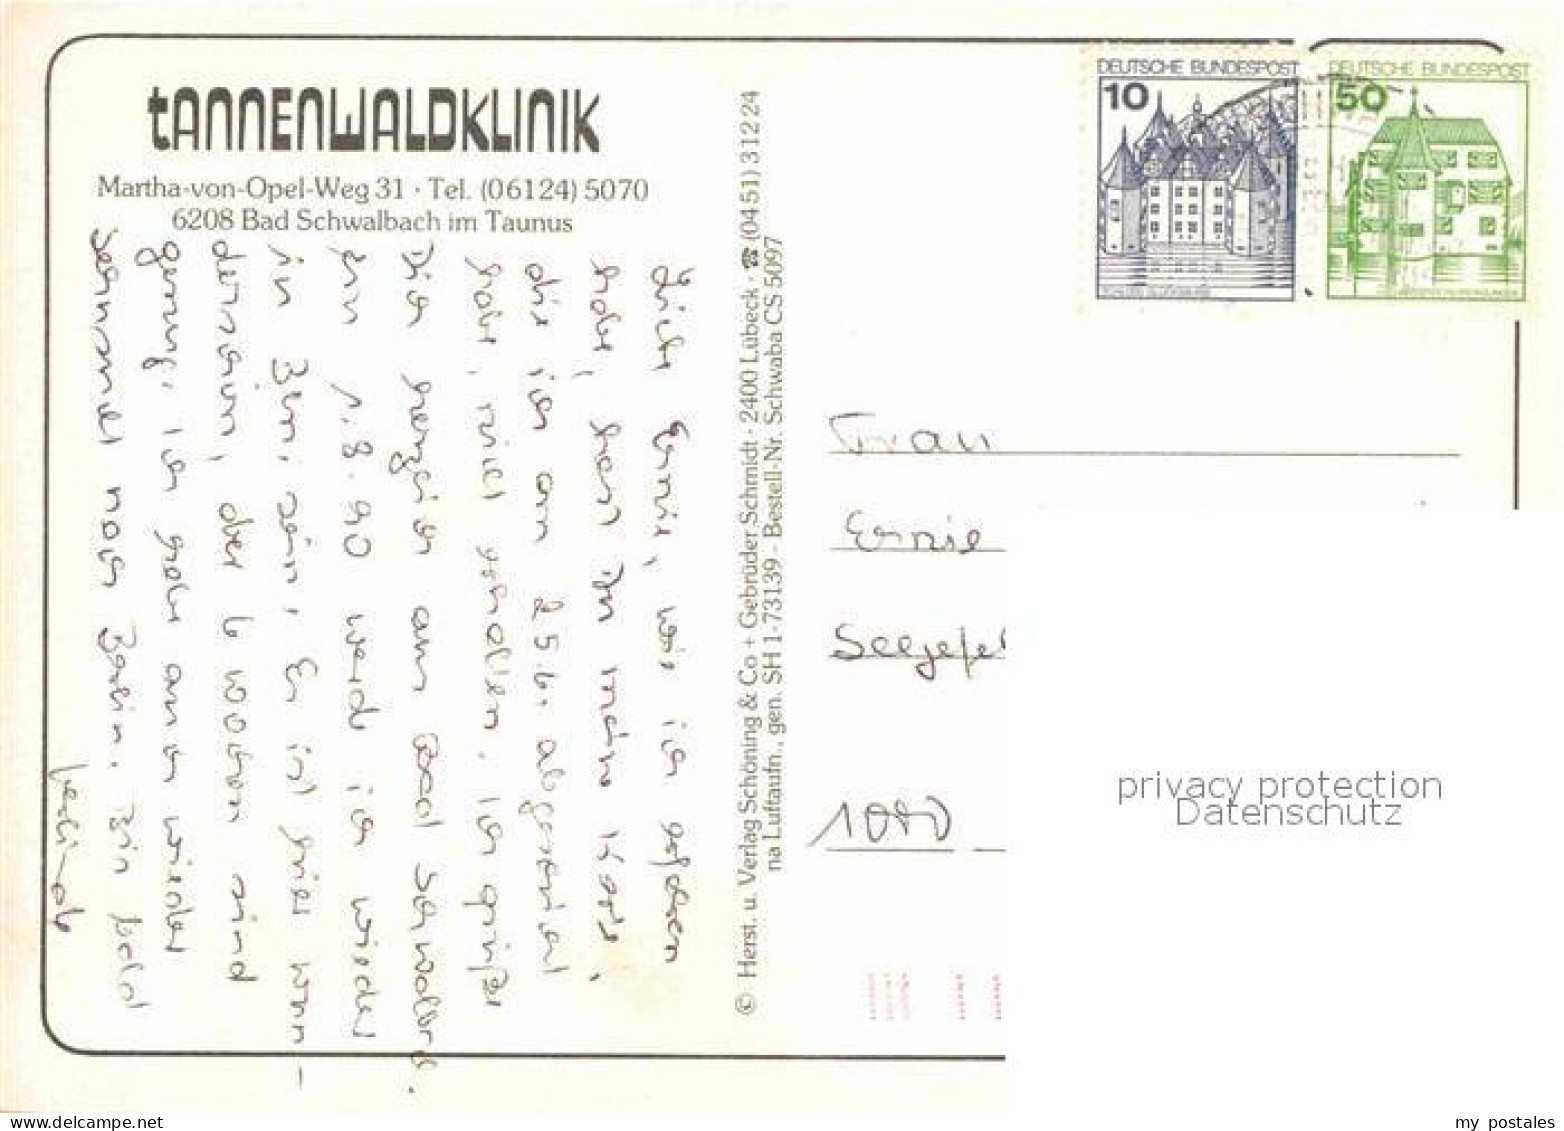 tANNENWALDKLINIK
Martha-von-Opel-Weg 31 · Tel. (06124) 5070
6208 Bad Schwalbach im Taunus
Liebe Ernie, wie ich gesehen
habe, hast Du meine Karte,
die ich am 25.6. abgeschickt
habe, nicht erhalten. Ich grüße
Dich herzlich aus Bad Schwalba.
Am 1.8.90 werde ich wieder
in Bln. sein. Es ist hier wun-
derschön, aber 6 Wochen sind
genug. Ich habe auch wieder
Sehnsucht nach Berlin. Bis bald
© Herst. u. Verlag Schöning & Co + Gebrüder Schmidt · 2400 Lübeck · ☎ (0451) 31224
na Luftaufn., gen. SH 1-73139 - Bestell-Nr. Schwaba CS 5097
DEUTSCHE BUNDESPOST
10
SCHLOSS GLÜCKSBURG
DEUTSCHE BUNDESPOST
50
Frau
Ernie
Seegefel
1000
privacy protection
Datenschutz
my postales